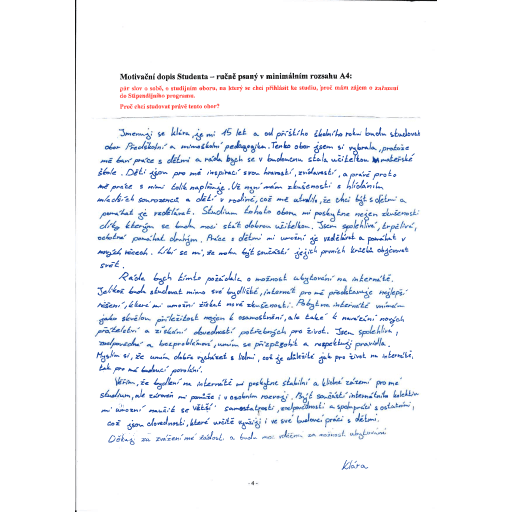 Motivační dopis Studenta – ručně psaný v minimálním rozsahu A4:
pár slov o sobě, o studijním oboru, na který se chci přihlásit ke studiu, proč mám zájem o zařazení
do Stipendijního programu.
Proč chci studovat právě tento obor?
Jmenuji se Klára, je mi 15 let a od příštího školního roku budu studovat
obor Předškolní a mimoškolní pedagogika. Tento obor jsem si vybrala, protože
mě baví práce s dětmi a ráda bych se v budoucnu stala učitelkou v mateřské
škole. Děti jsou pro mě inspirací svou hravostí, zvídavostí, a právě proto
mě práce s nimi tolik naplňuje. Už nyní mám zkušenosti s hlídáním
mladších sourozenců a dětí v rodině, což mě utvrdilo, že chci být s dětmi a
pomáhat je vzdělávat. Studium tohoto oboru mi poskytne nejen zkušenosti
díky kterým se budu moci stát dobrou učitelkou. Jsem spolehlivá, trpělivá,
ochotná pomáhat druhým. Práce s dětmi mi umožní je vzdělávat a pomáhat v
nových věcech. Líbí se mi, že mohu být součástí jejich prvních krůčků objevovat
svět.
Ráda bych tímto požádala o možnost ubytování na internátě.
Jelikož budu studovat mimo své bydliště, internát pro mě představuje nejlepší
řešení, které mi umožní získat nové zkušenosti. Pobyt na internátě vnímám
jako skvělou příležitost nejen k osamostatnění, ale také k navázání nových
přátelství a získání dovedností potřebných pro život. Jsem spolehlivá,
zodpovědná a bezproblémová, umím se přizpůsobit a respektuji pravidla.
Myslím si, že umím dobře vycházet s lidmi, což je důležité jak pro život na internátě,
tak pro má budoucí povolání.
Věřím, že bydlení na internátě mi poskytne stabilní a klidné zázemí pro mé
studium, ale zároveň mi pomůže i v osobním rozvoji. Být součástí internátního kolektivu
mi umožní naučit se větší samostatnosti, zodpovědnosti a spolupráci s ostatními,
což jsou dovednosti, které určitě využiji i ve své budoucí práci s dětmi.
Děkuji za zvážení mé žádosti a budu moc vděčná za možnost ubytování
Klára
- 4 -